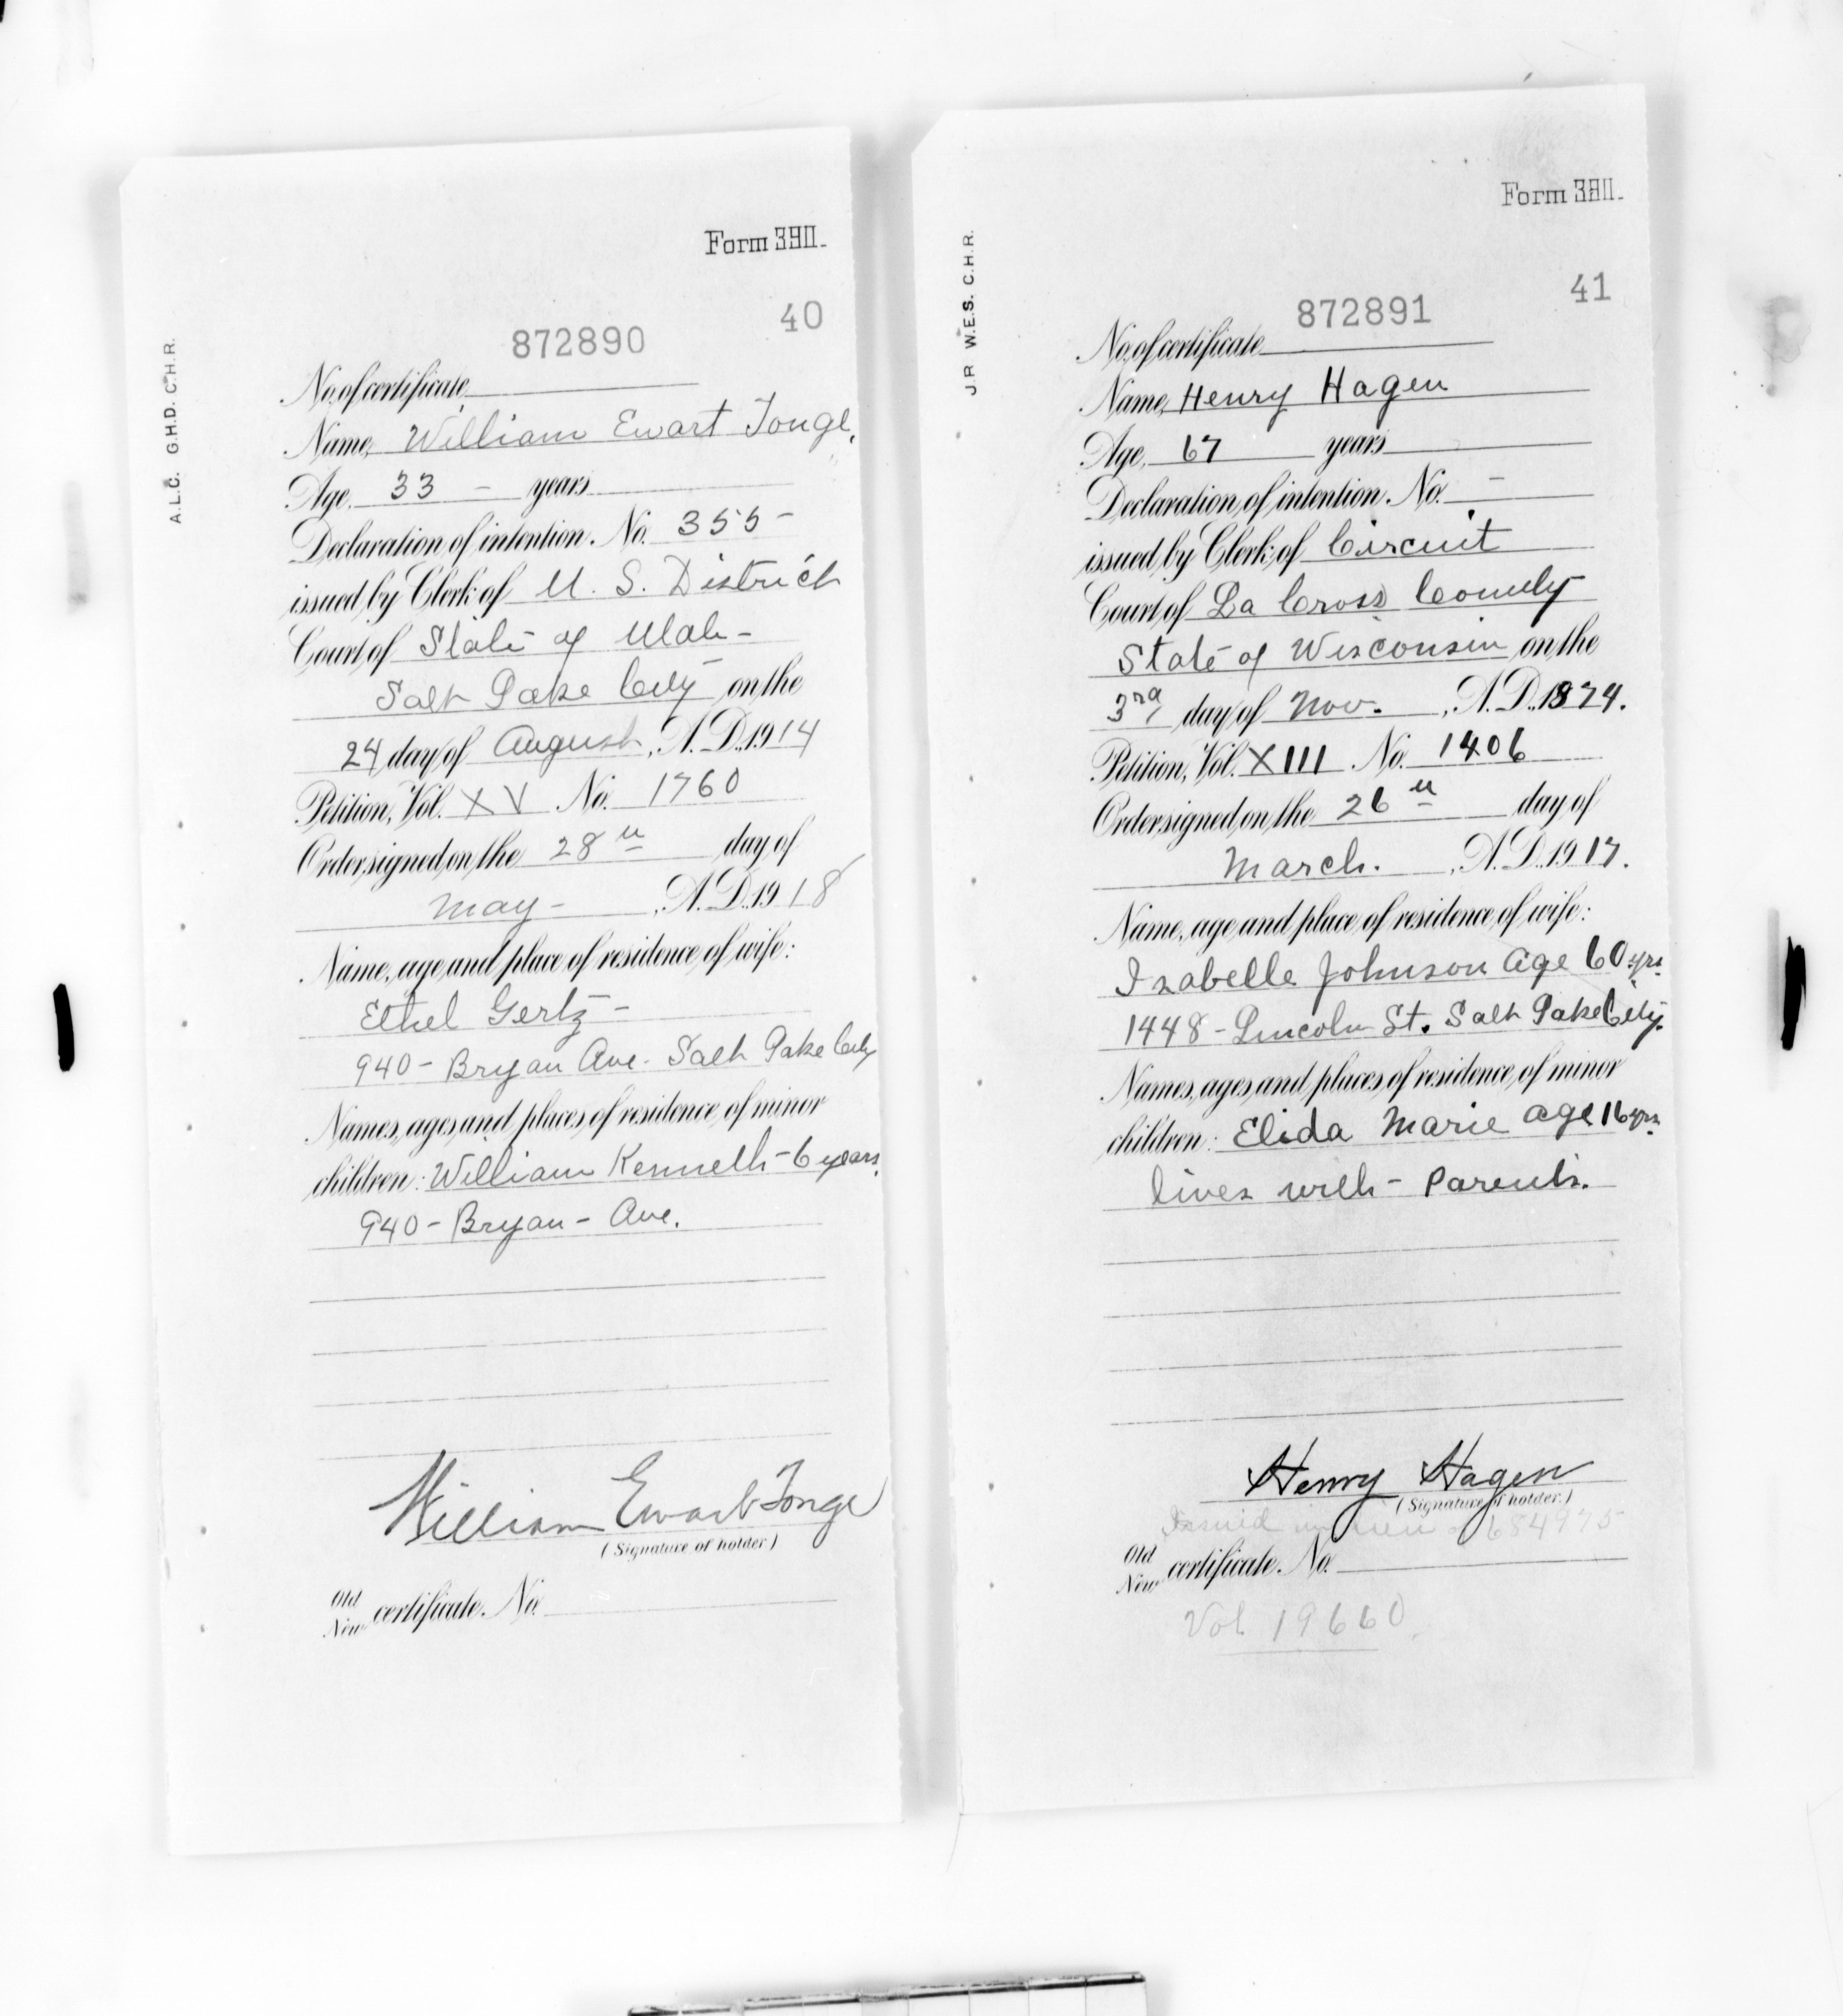 Form 3911.
40
872890
A.L.C. G.H.D. C.H.R.
No. of certificate
Name, William Ewart Tonge.
Age, 33 - years
Declaration of intention. No. 355 -
issued by Clerk of U. S. District
Court of State of Utah -
Salt Lake City on the
24 day of August, A. D., 1914
Petition, Vol. XV No. 1760
Order signed on the 28" day of
May - , A. D., 1918
Name, age and place of residence of wife:
Ethel Gertz -
940 - Bryan Ave. Salt Lake City
Names, ages and places of residence of minor
children: William Kenneth - 6 years.
940 - Bryan - Ave.
William Ewart Tonge
(Signature of holder.)
Old
New certificate. No.
Form 3911.
41
872891
J.R W.E.S. C.H.R.
No. of certificate
Name, Henry Hagen
Age, 67 years
Declaration of intention. No. -
issued by Clerk of Circuit
Court of La Cross County
State of Wisconsin on the
3rd day of Nov. , A. D., 1874.
Petition, Vol. XIII No. 1406
Order signed on the 26" day of
March. , A. D., 1917.
Name, age and place of residence of wife:
Izabelle Johnson Age 60 yrs.
1448 - Lincoln St. Salt Lake City.
Names, ages and places of residence of minor
children: Elida Marie age 16 yrs.
lives with - Parents.
Henry Hagen
(Signature of holder.)
Issued in lieu of 684975
Old
New certificate. No.
Vol 19660.